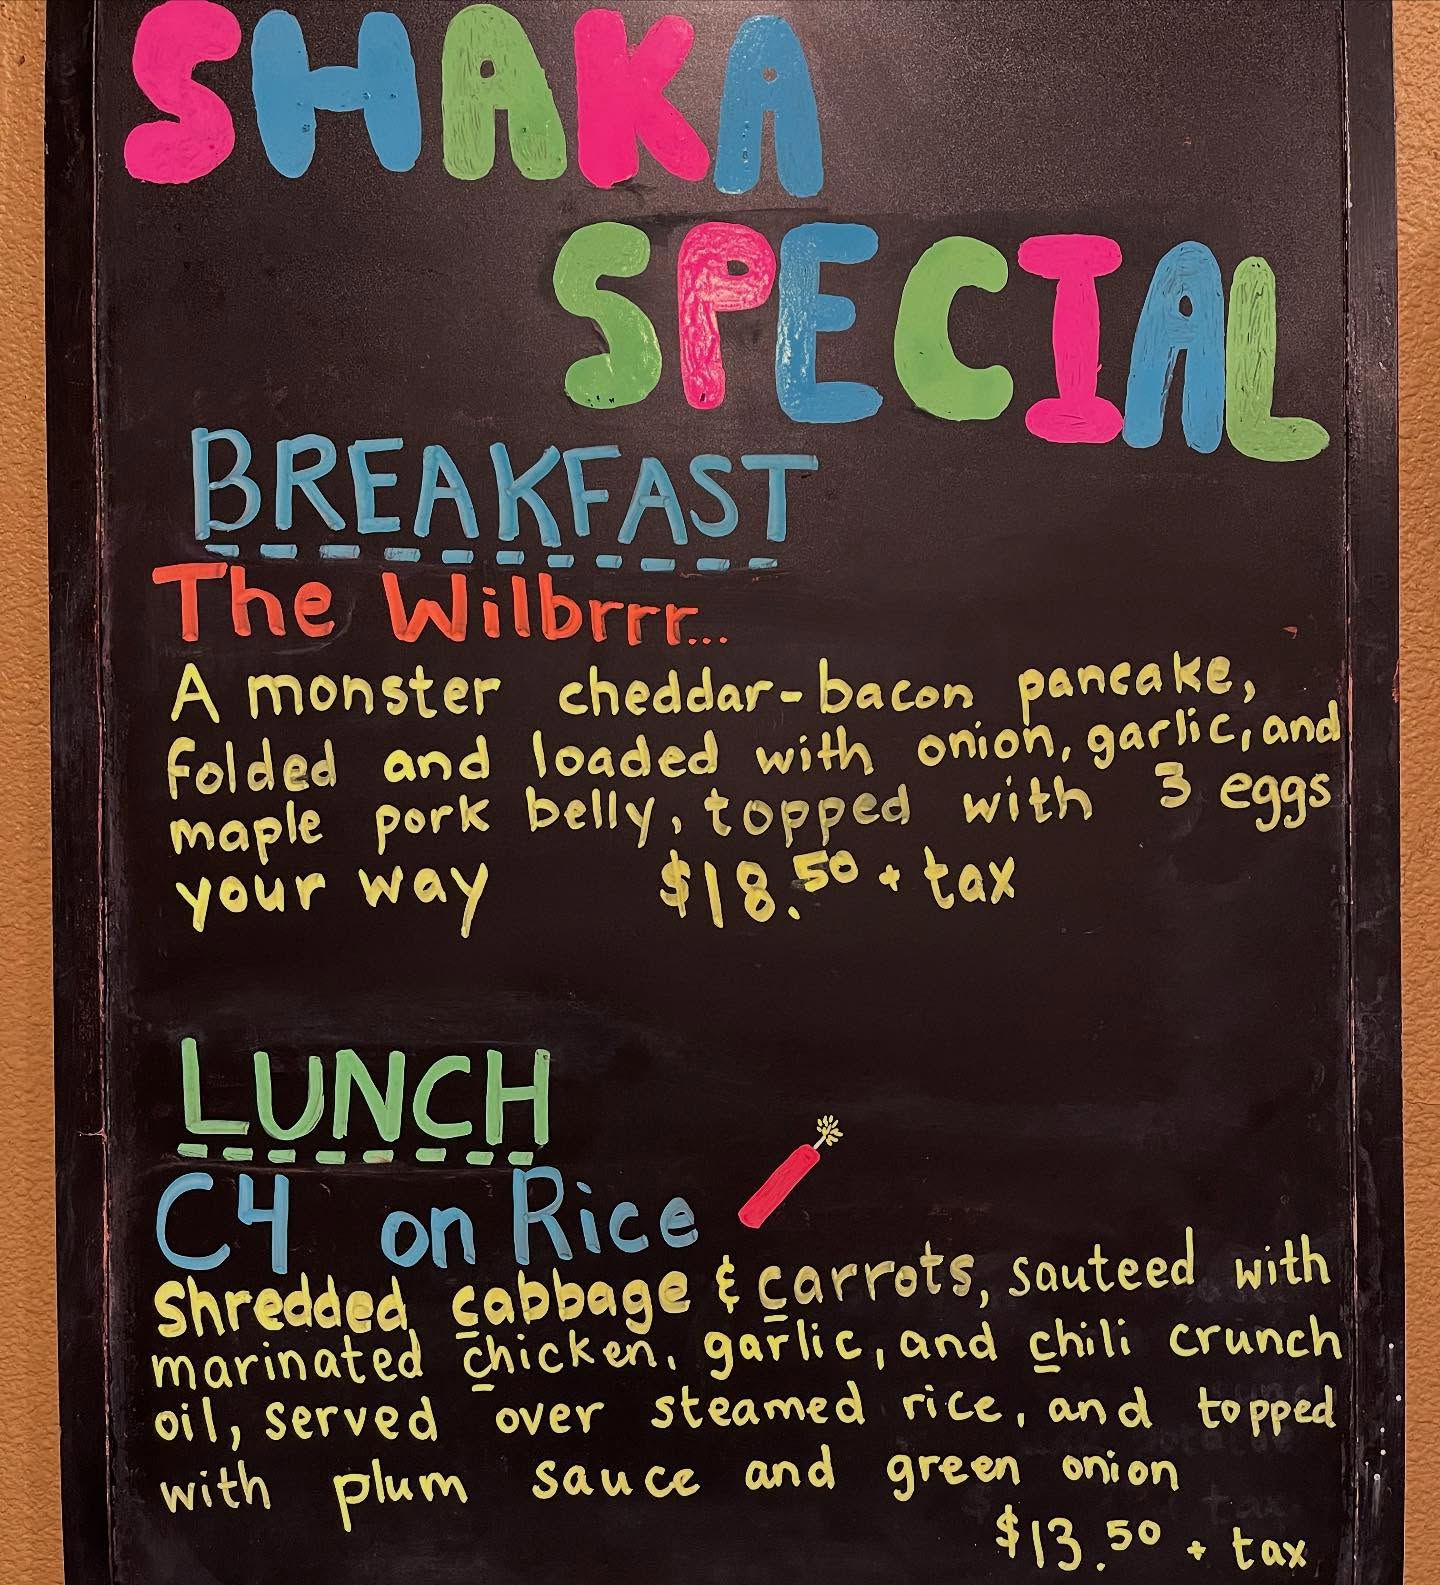 SHAKA
SPECIAL
BREAKFAST
The Wilbrrr...
A monster cheddar-bacon pancake,
folded and loaded with onion, garlic, and
maple pork belly, topped with 3 eggs
your way $18.50 + tax
LUNCH
C4 on Rice
Shredded cabbage & carrots, sauteed with
marinated chicken, garlic, and chili crunch
oil, served over steamed rice, and topped
with plum sauce and green onion
$13.50 + tax